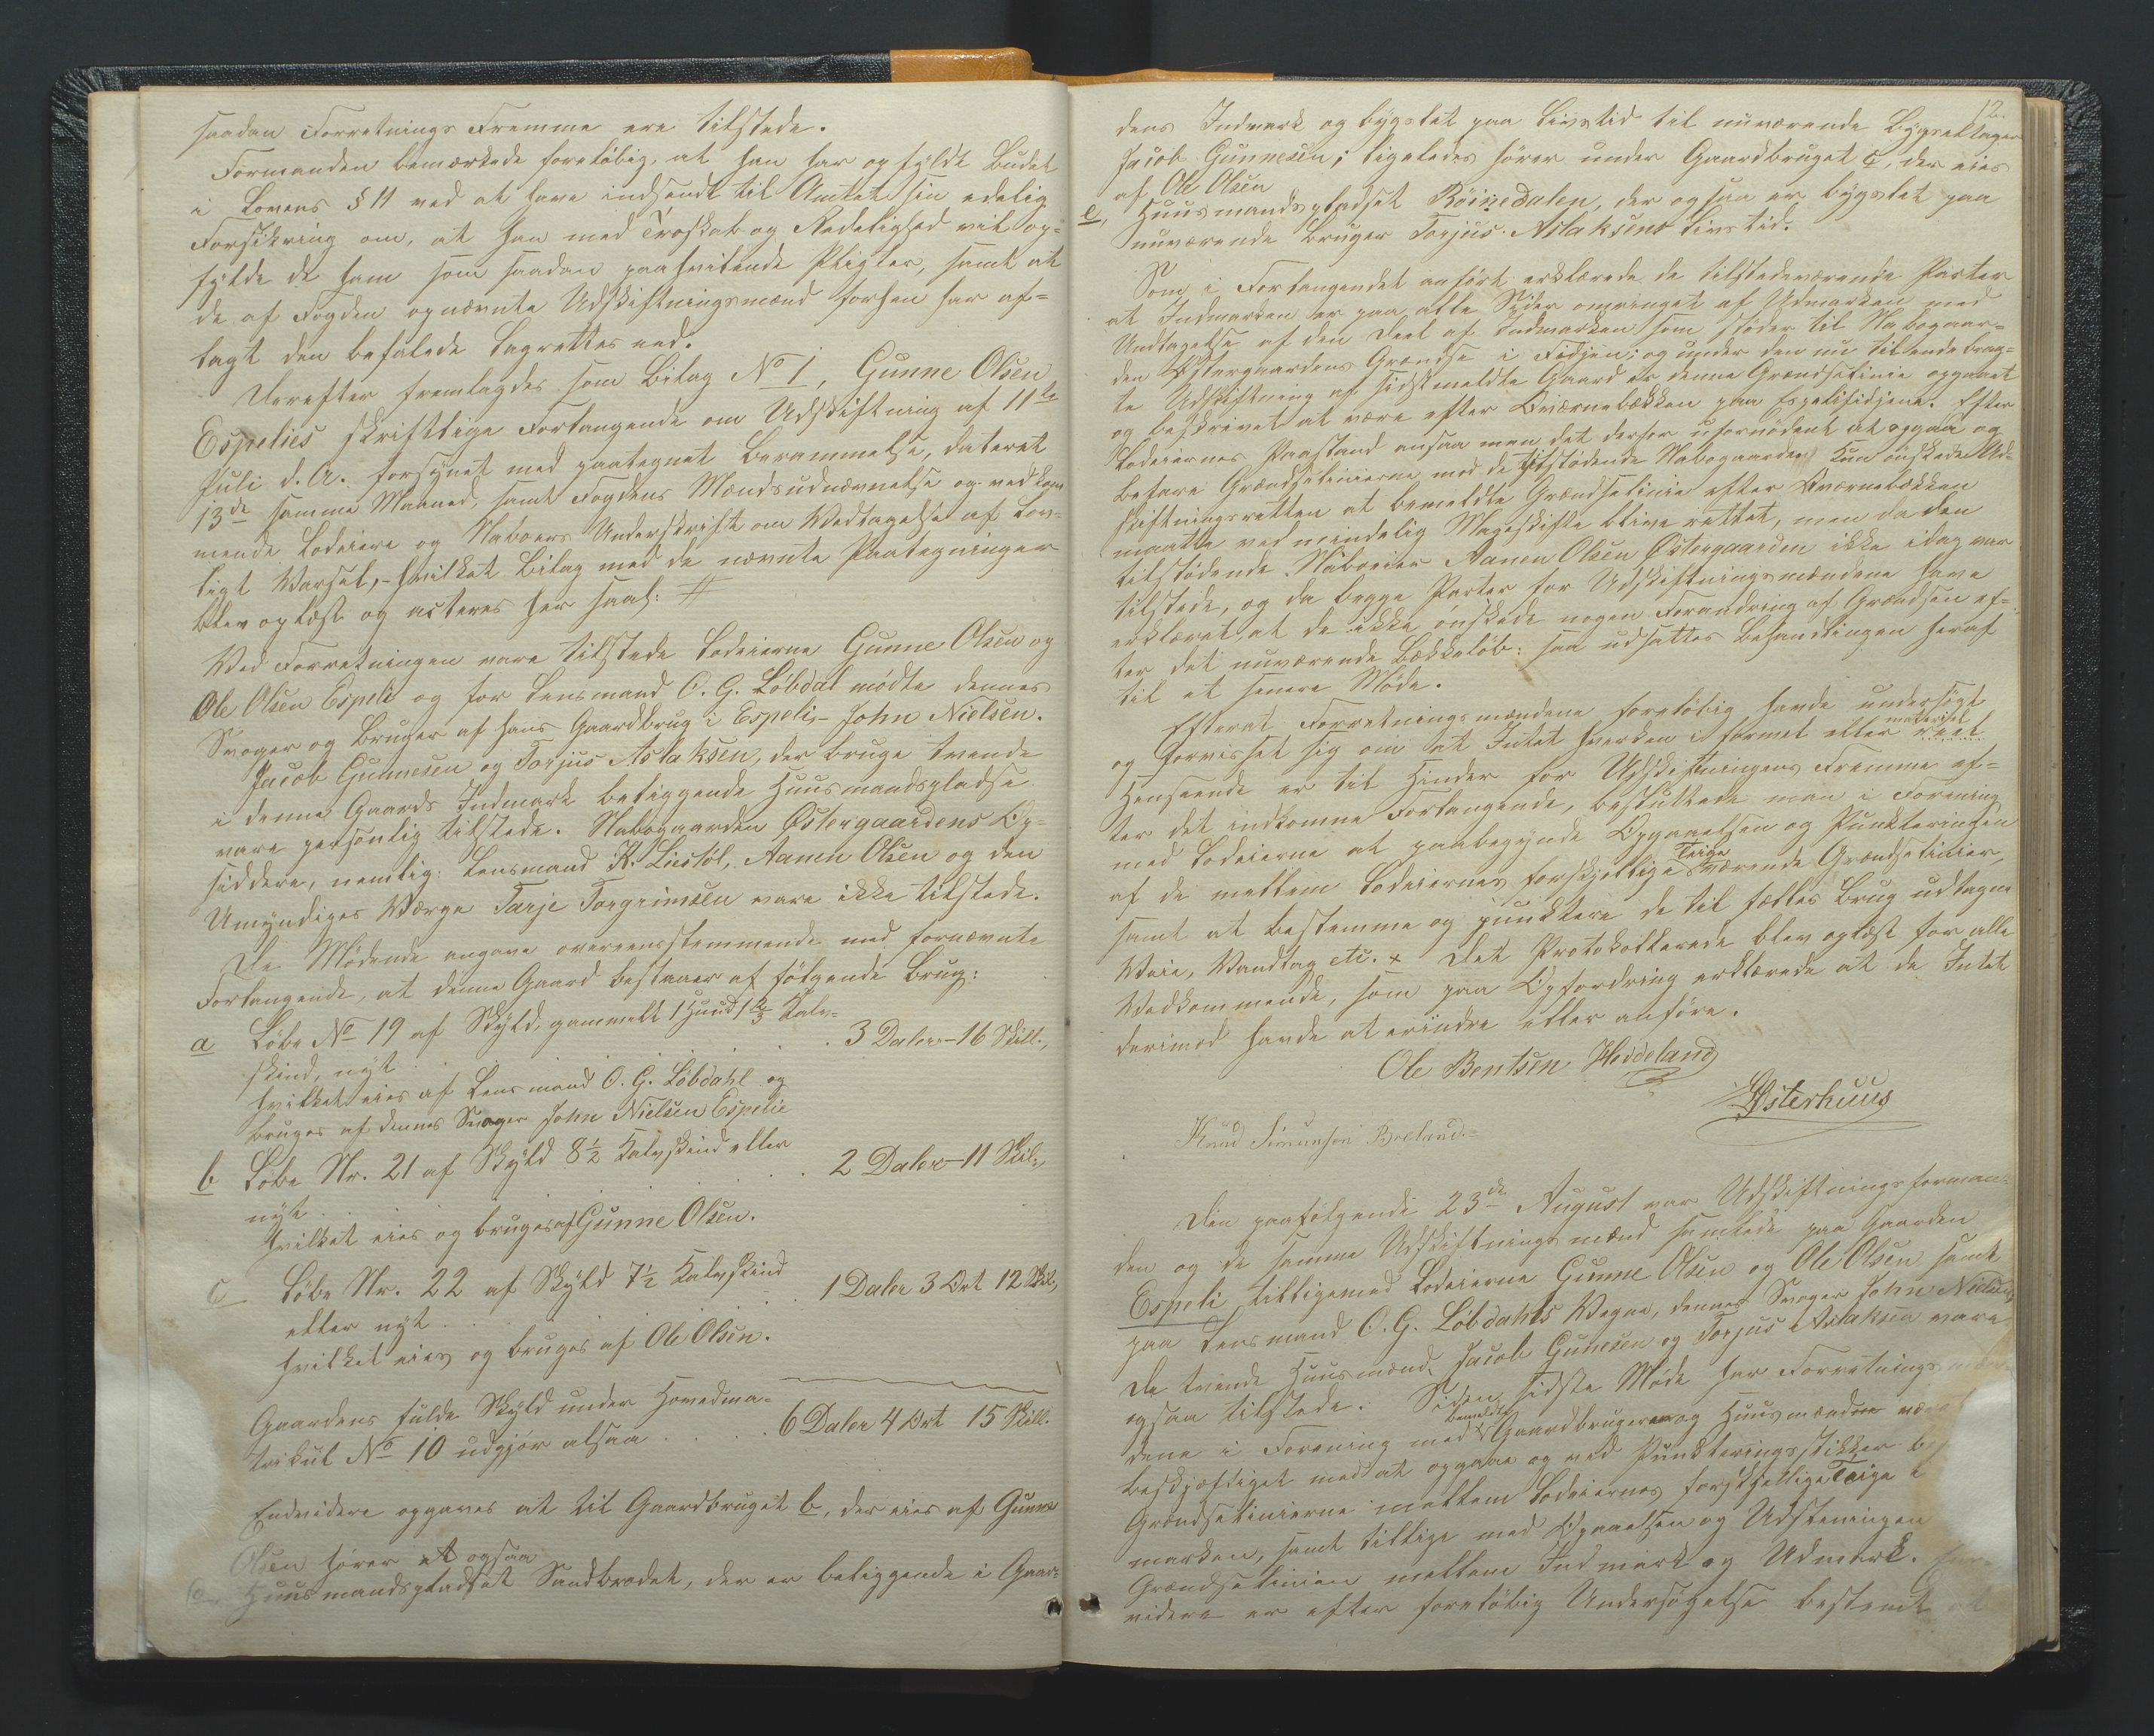 saadan Forretnings Fremme ere tilstede.
Formanden bemærkede foreløbig, at han har opfyldt Budet
i Lovens § 11 ved at have indsendt til Amtet sin edelig
Forsikring om, at han med Troskab og Redelighed vil op-
fylde de ham som saadan paahvilende Pligter, samt at
de af Fogden opnævnte Udskiftningsmænd forhen har af-
lagt den befalede Lagrettes eed.
Derefter fremlagdes som Bilag No 1, Gunne Olsen
Espelies skriftlige Forlangende om Udskiftning af 11te
Juli d. A. forsynet med paategnet Berammelse, dateret
13de samme Maaned, samt Fogdens Mændsudnævnelse og vedkom
mende Lodeiere og Naboers Underskrift om Vedtagelse af Lov-
ligt Varsel, - hvilket Bilag med de nævnte Paategninger
blev oplæst og acteres her saal: #
Ved Forretningen vare tilstede Lodeierne Gunne Olsen og
Ole Olsen Espeli og for Lensmand O. G. Løbdal mødte dennes
Svoger og Bruger af hans Gaardbrug i Espeli - John Nielsen.
Jacob Gunnesen og Torjus Aslaksen, der bruge tvende
i denne Gaards Indmark beliggende Huusmandspladse
vare personlig tilstede. Nabogaarden Østergaardens Op-
siddere, nemlig: Lensmand K. Liestøl, Aanen Olsen og den
Umyndiges Værge Tarje Torgrimsen vare ikke tilstede.
De Mødende angave overeensstemmende med fornævnte
Forlangende, at denne Gaard bestaaer af følgende Brug:
a Løbe No 19 af Skyld, gammelt 1 Huud 1 2/3 Kalv-
skind, nyt . . . . . 3 Daler - 16 Skill.,
hvilket eies af Lensmand O. G. Løbdahl og
bruges af dennes Svoger John Nielsen Espelie
b Løbe Nr. 21 af Skyld 8½ Kalvskind eller
nyt . . . . . 2 Daler - 11 Skil.,
hvilket eies og bruges af Gunne Olsen.
c Løbe Nr. 22 af Skyld 7½ Kalvskind
eller nyt . . . . 1 Daler 3 Ort 12 Skil.,
hvilket eies og bruges af Ole Olsen.
Gaardens fulde Skyld under Hovedma-
trikul No 10 udgjør altsaa . . . . 6 Daler 4 Ort 15 Skill.
Endvidere opgaves at til Gaardbruget b, der eies af Gunne
Olsen hører et ogsaa
Huusmandspladset Sandbrødet, der er beliggende i Gaar-
12.
dens Indmark og bygslet paa Livstid til nuværende Bygseltager
Jacob Gunnesen; ligeledes hører under Gaardbruget c, der eies
af Ole Olsen
e, Huusmandspladset Röinedalen, der ogsaa er bygslet paa
nuværende Bruger Torjus Aslaksens Livstid.
Som i Forlangendet anført erklærede de tilstedeværende Parter
at Indmarken er paa alle Sider omringet af Udmarken med
Undtagelse af den Deel af Indmarken som støder til Nabogaar-
den Østergaardens Grændse i Fidjen; og under den nu tilendebrag-
te Udskiftning af sidstmeldte Gaard er denne Grændselinie opgaaet
og beskrivet at være efter Qværnebækken paa Espelifidjene. Efter
Lodeiernes Paastand ansaa man det derfor ufornødent at opgaa og
befare Grændselinierne med de tilstødende Nabogaarde; Kun ønskede Ud-
skiftningsretten at bemeldte Grændselinie efter Qværnebækken
maatte ved mindelig Mageskifte blive rettet, men da den
tilstødende Naboeier Aanen Olsen Østergaarden ikke idag var
tilstede, og da begge Parter for Udskiftningsmændene have
erklæret, at de ikke ønskede nogen Forandring af Grændsen ef-
ter det nuværende Bækkeløb: saa udsattes Behandlingen heraf
til et senere Møde.
Efterat Forretningsmændene foreløbig havde undersøgt
og forvisset sig om at Intet hverken i formel eller materiel reel
Henseende er til Hinder for Udskiftningens Fremme ef-
ter det indkomne Forlangende, besluttede man i Forening
med Lodeierne at paabegynde Opgaaelsen og Punkteringen
af de mellem Lodeiernes forskjellige Teige værende Grændselinier,
samt at bestemme og punktere de til fælles Brug udtagne
Veie, Vandtag etc. x Det Protokollerede blev oplæst for alle
Vedkommende, som paa Opfordring erklærede at de Intet
derimod havde at erindre eller anføre.
Ole Bentsen Heddeland
Østerhuus
Knud Simunsen Breland.
Den paafølgende 23de August var Udskiftningsforman-
den og de samme Udskiftningsmænd samlede paa Gaarden
Espeli tilligemed Lodeierne Gunne Olsen og Ole Olsen samt
paa Lensmand O. G. Løbdahls Vegne, dennes Svoger John Nielsen,
De tvende Huusmænd, Jacob Gunesen og Torjus Aslaksen vare
ogsaa tilstede. Siden sidste Møde har Forretnings
dene i Forening med bemeldte Gaardbrugere og Huusmænd
beskjæftiget med at opgaae og ved Punkteringsstikker
Grændselinierne mellem Lodeiernes forskjellige Teige i
marken, samt tillige med Opgaaelsen og Udsteningen
Grændselinien mellem Indmark og Udmark.
videre er efter foreløbig Undersøgelse bestemt